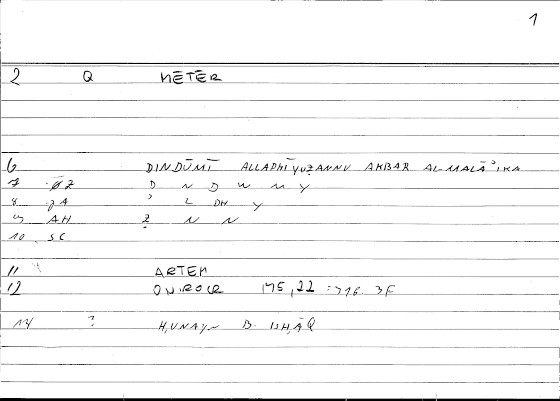 1
2 Q MĒTĒR
6 DINDŪMĪ ALLADHĪ YUẒANNU AKBAR AL-MALĀʾIKA
7 ØZ D N D W M Y
8 ʾ L DH Y
9 AH Ẓ N N
10 SC
11 ARTEM
12 ONIROCR 175,22 3F
14 ? H,UNAYN B. ISH,ĀQ